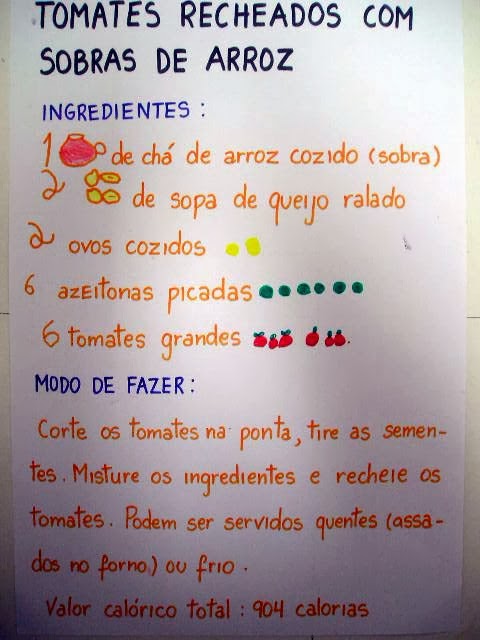 TOMATES RECHEADOS COM
SOBRAS DE ARROZ
INGREDIENTES :
1 de chá de arroz cozido (sobra)
2 de sopa de queijo ralado
2 ovos cozidos
6 azEitonas picadas
6 tomates grandes .
MODO DE FAZER :
Corte os tomates na ponta, tire as semen-
tes. Misture os ingredientes e recheie os
tomates. Podem ser servidos quentes (assa-
dos no forno) ou frio .
Valor calórico total : 904 calorias